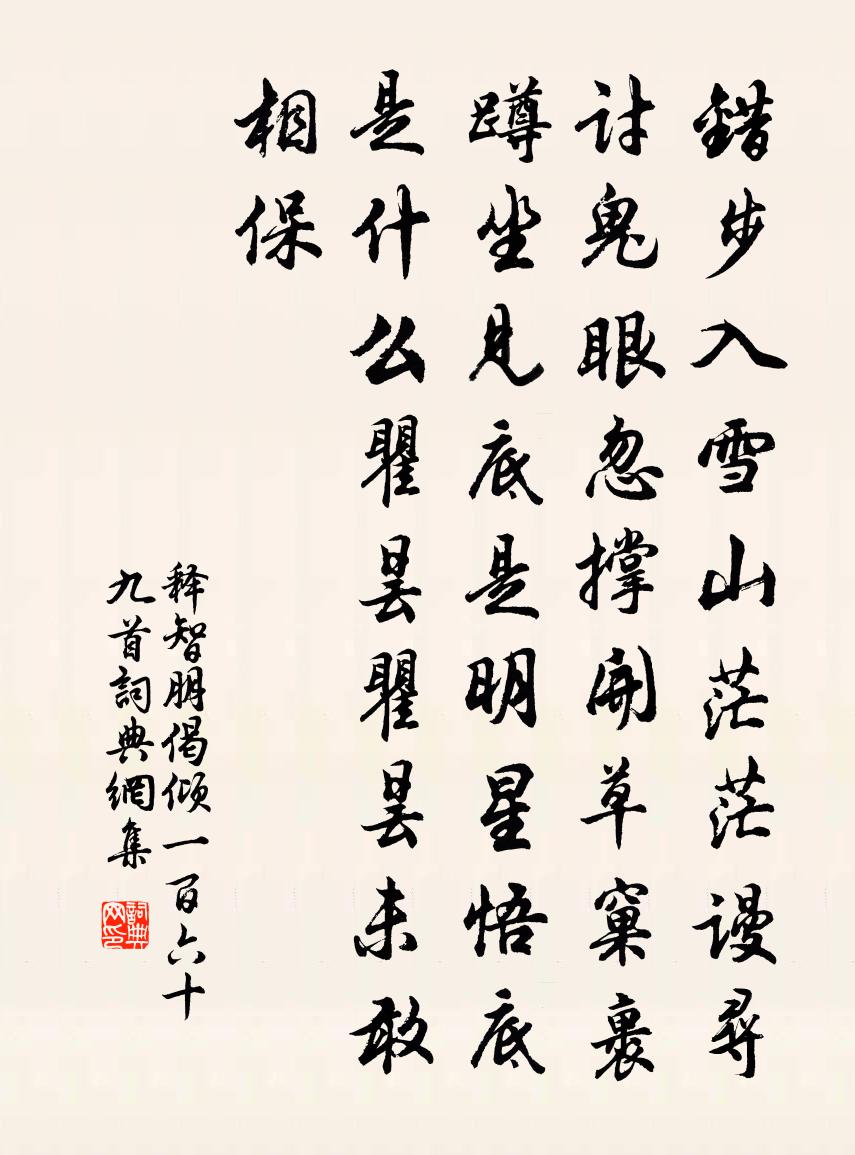 錯步入雪山茫茫謾尋
討鬼眼忽撐開草窠裏
蹲坐見底是明星悟底
是什么瞿曇瞿曇未敢
相保
释智朋偈倾一百六十
九首詞典網集
詞典网印